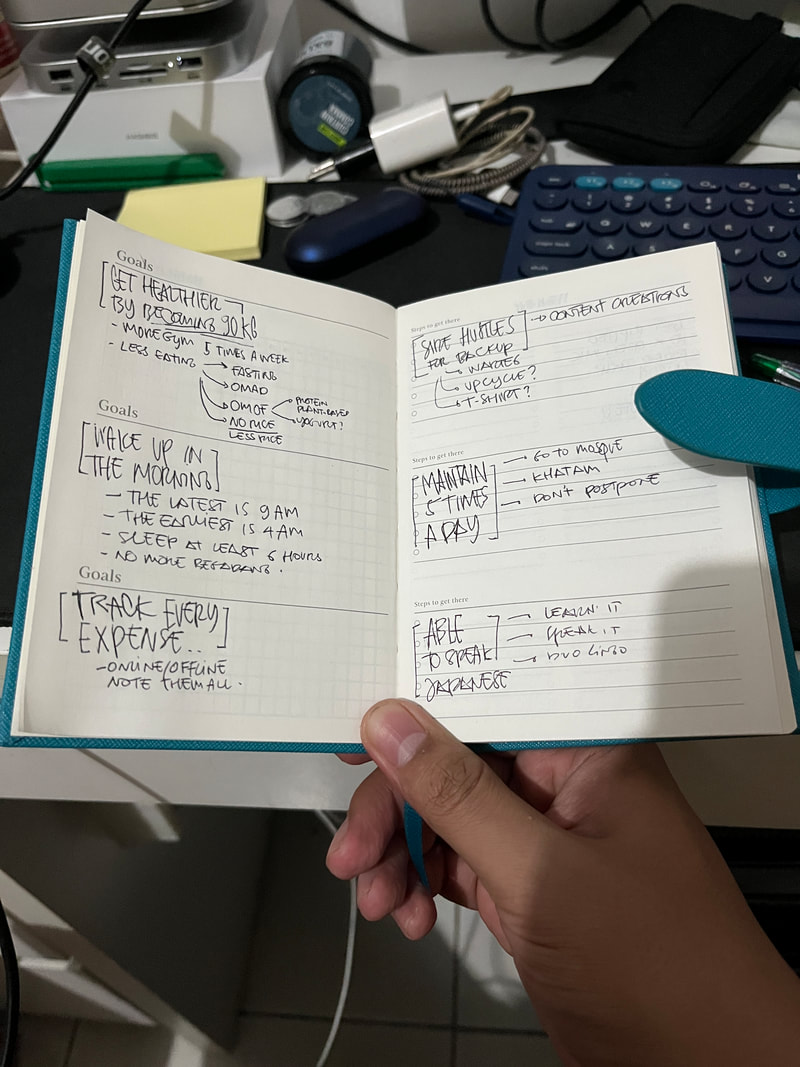 Goals
GET HEALTHIER
BY BECOMING 90KG
- MORE GYM 5 TIMES A WEEK
- LESS EATING → FASTING
→ OMAD
→ OMOF
PROTEIN
PLANT-BASED
YOGURT?
NO RICE
LESS RICE
Goals
WAKE UP IN
THE MORNING
- THE LATEST IS 9 AM
- THE EARLIEST IS 4 AM
- SLEEP AT LEAST 6 HOURS
- NO MORE BEGADANG.
Goals
TRACK EVERY
EXPENSE..
- ONLINE/OFFLINE
NOTE THEM ALL.
Steps to get there
SIDE HUSTLES → CONTENT CREATIONS
FOR BACKUP
→ UPCYCLE?
→ T-SHIRT?
Steps to get there
MAINTAIN → GO TO MOSQUE
5 TIMES → KHATAM
A DAY → DON'T POSTPONE
Steps to get there
ABLE → LEARN IT
TO SPEAK → SPEAK IT
JAPANESE → DUOLINGO